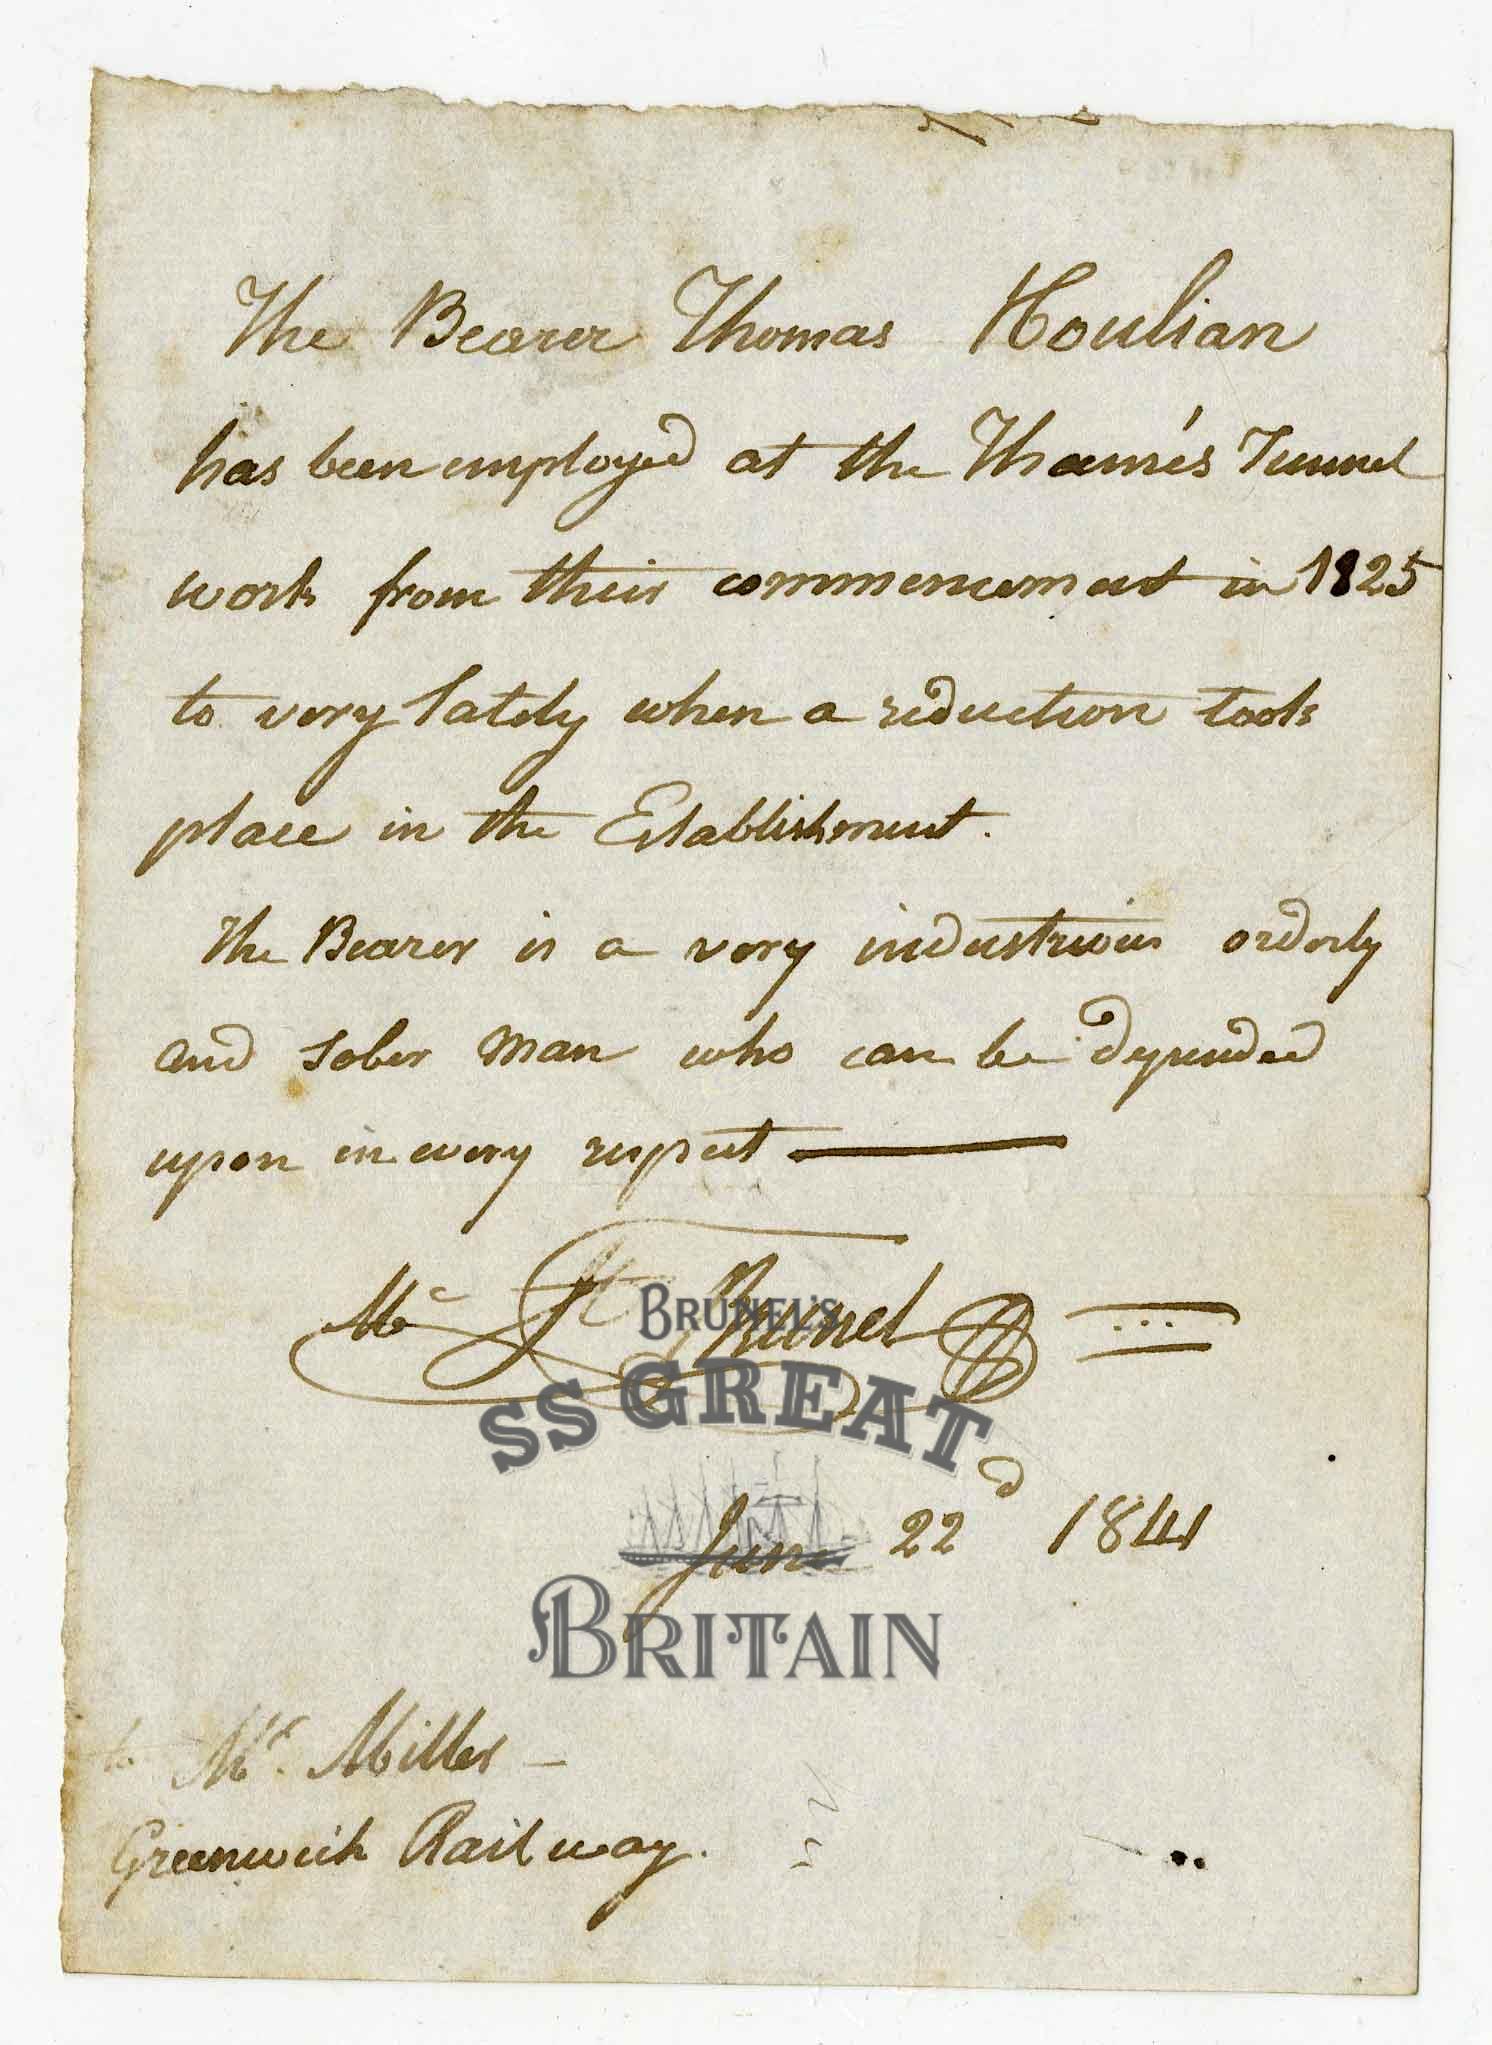 The Bearer Thomas Houlian
has been employed at the Thames Tunnel
work from their commencement in 1825
to very lately when a reduction took
place in the Establishment.
The Bearer is a very industrious orderly
and sober man who can be depended
upon in every respect
Brunel
BRUNEL'S
SS GREAT
BRITAIN
June 22d 1841
to Mr. Miller
Greenwich Railway.